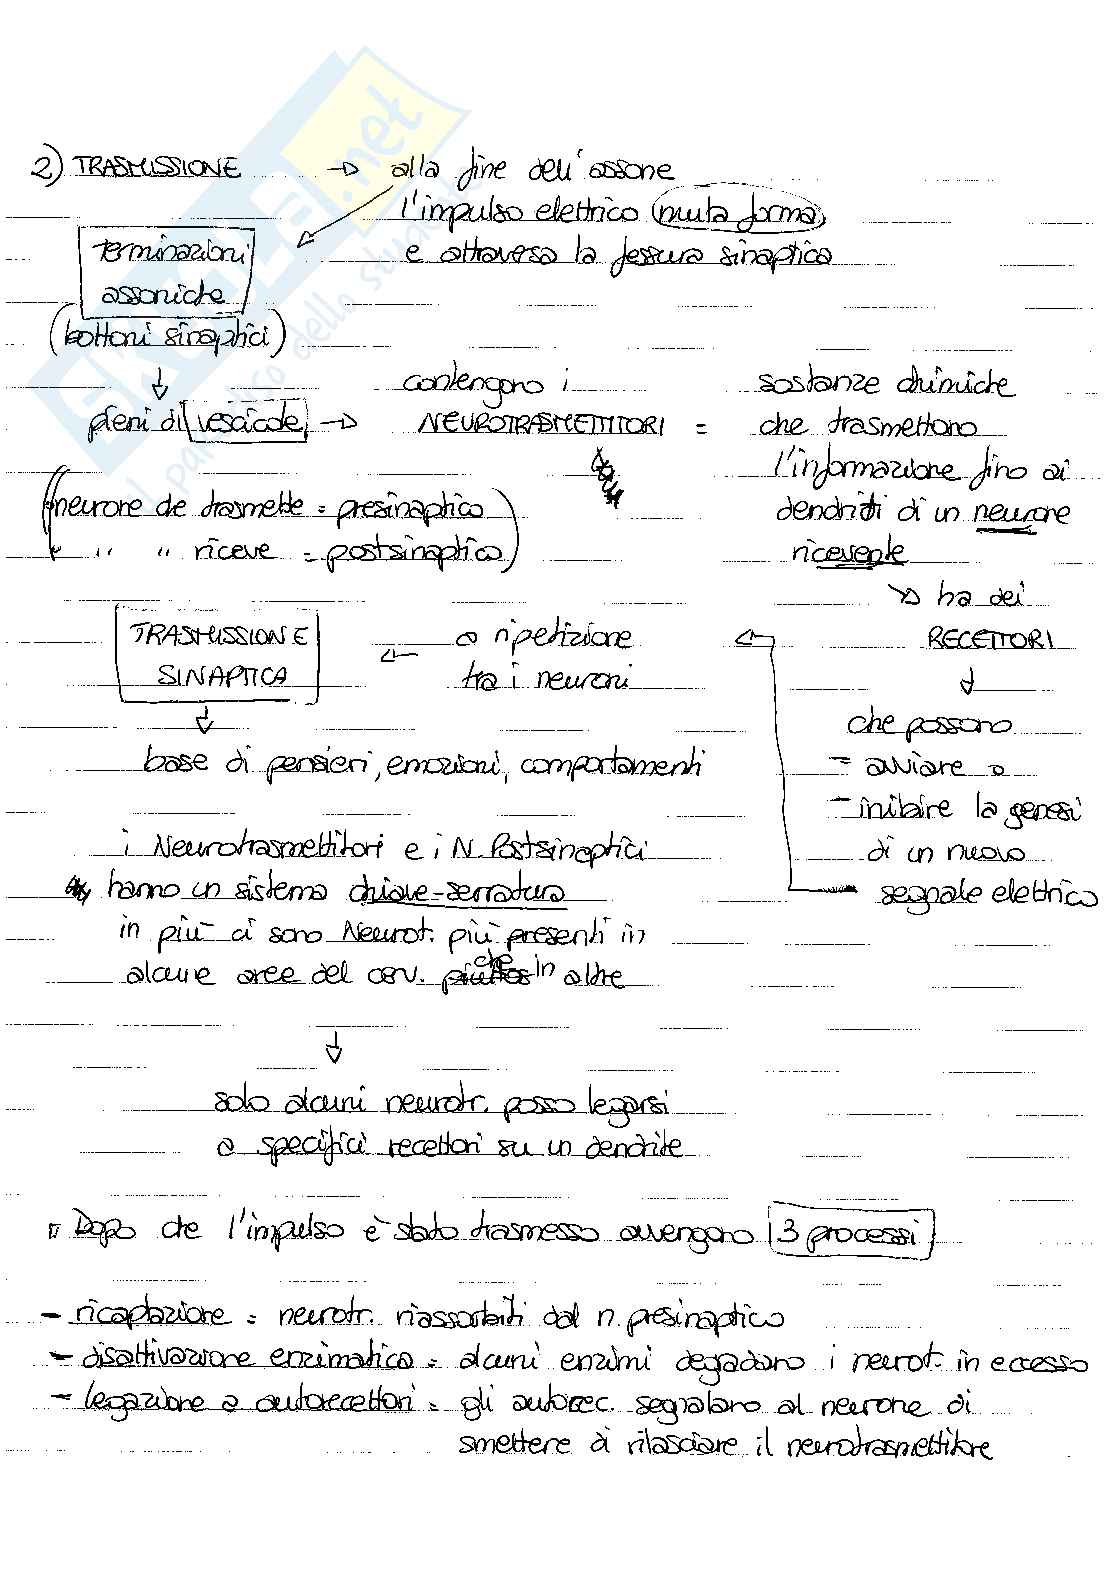 2) TRASMISSIONE → alla fine dell'assone
l'impulso elettrico (muta forma)
e attraversa la fessura sinaptica
terminazioni
assoniche
(bottoni sinaptici)
↓
pieni di vescicole →
contengono i
NEUROTRASMETTITORI =
sostanze chimiche
che trasmettono
l'informazione fino ai
dendriti di un neurone
ricevente
(neurone che trasmette = presinaptico
" " riceve = postsinaptico)
→ ha dei
RECETTORI
↓
che possono
- avviare o
- inibire la genesi
di un nuovo
segnale elettrico
← a ripetizione
tra i neuroni
←
TRASMISSIONE
SINAPTICA
↓
base di pensieri, emozioni, comportamenti
i Neurotrasmettitori e i N. Postsinaptici
hanno un sistema chiave-serratura
in più ci sono Neurot. più presenti in
alcune aree del cerv. che in altre
↓
solo alcuni neurotr. posso legarsi
a specifici recettori su un dendrite
Dopo che l'impulso è stato trasmesso avvengono 3 processi
- ricaptazione = neurotr. riassorbiti dal n. presinaptico
- disattivazione enzimatica = alcuni enzimi degradano i neurot. in eccesso
- legazione a autorecettori = gli autorec. segnalano al neurone di
smettere di rilasciare il neurotrasmettitore
.net
dello studente